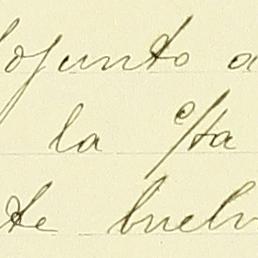 djunto a
la c/ta
te buelv